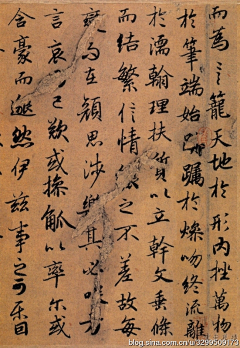 而為言籠天地於形內挫萬物
於筆端始躑躅於燥吻終流離
於濡翰理扶質以立幹文垂條
而結繁信情之不差故每
變在顏思涉樂其必笑
言哀已歎或操觚以率尔或
含豪而邈然伊茲事之可樂
blog.sina.com.cn/u/3299509173